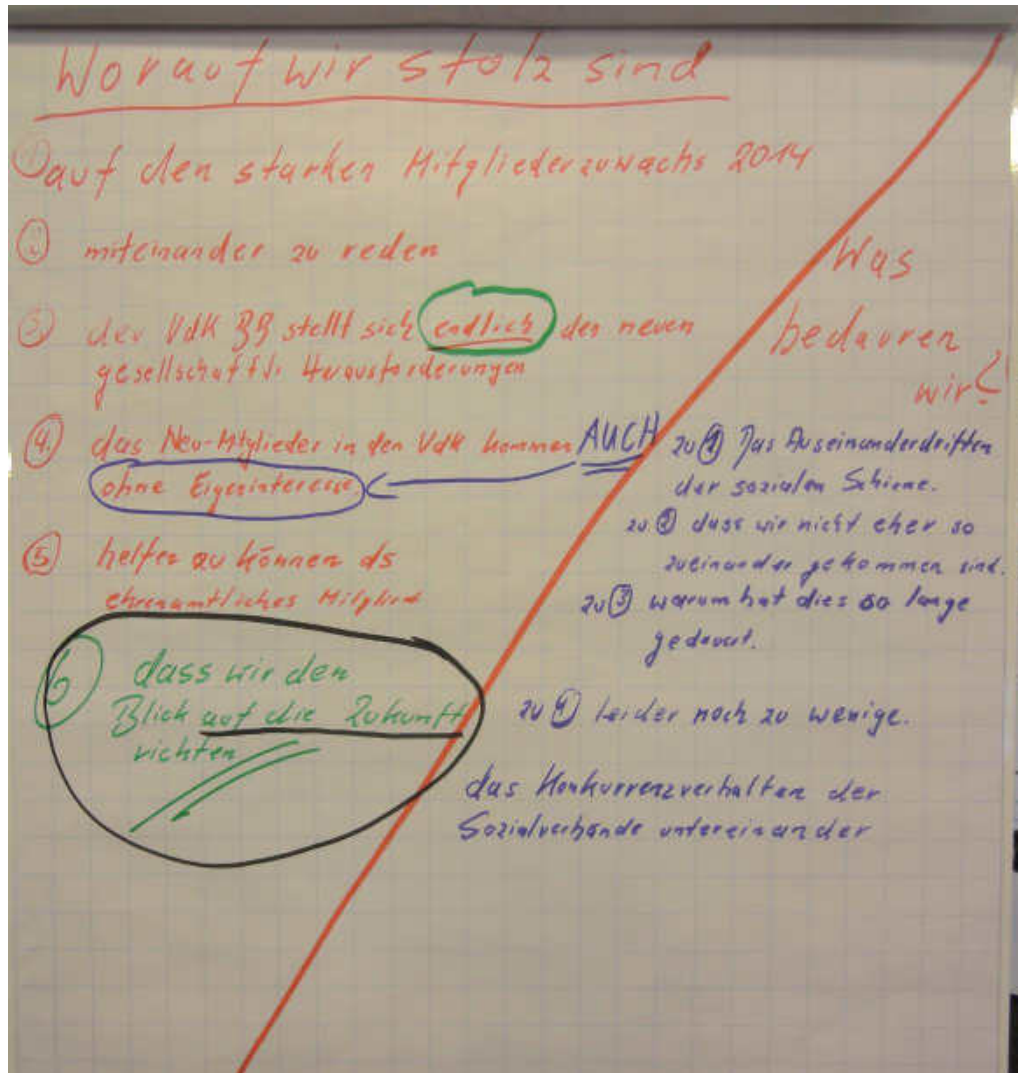 Worauf wir stolz sind
① auf den starken Mitgliederzuwachs 2014
② miteinander zu reden
③ der VdK BB stellt sich endlich den neuen
gesellschaftl. Herausforderungen
④. das Neu-Mitglieder in den VdK kommen AUCH
ohne Eigeninteresse.
⑤ helfen zu können als
ehrenamtliches Mitglied
⑥ dass wir den
Blick auf die Zukunft
richten
Was
bedauren
wir?
zu ① Das Auseinanderdriften
der sozialen Schiene.
zu ② dass wir nicht eher so
zueinander gekommen sind.
zu ③ warum hat dies so lange
gedauert.
zu ④ leider noch zu wenige.
das Konkurrenzverhalten der
Sozialverbände untereinander